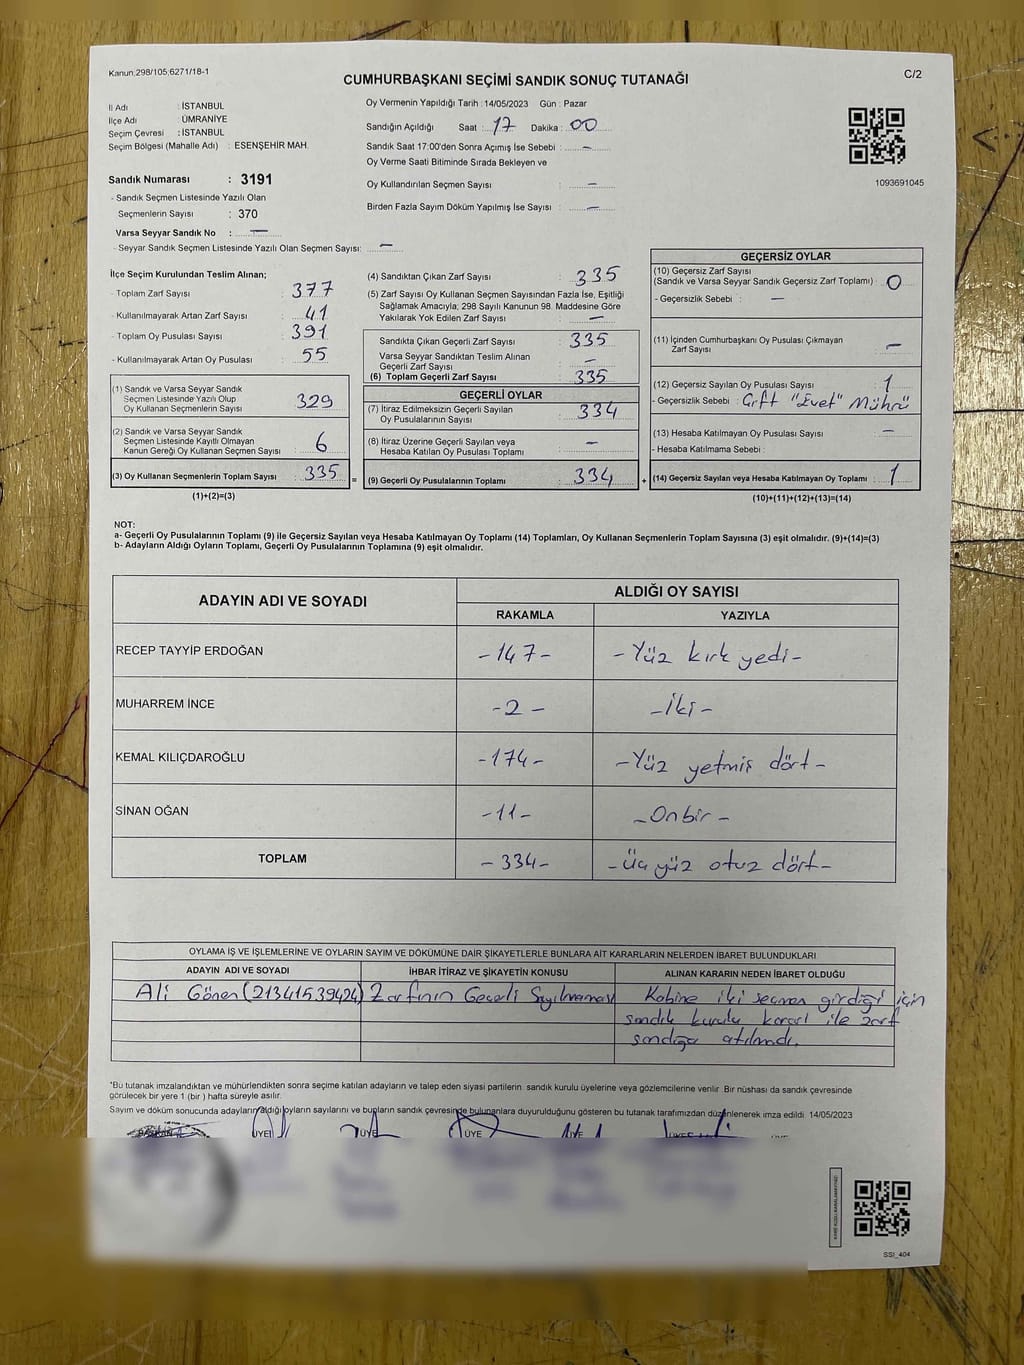 Kanun;298/105;6271/18-1
C/2
CUMHURBAŞKANI SEÇİMİ SANDIK SONUÇ TUTANAĞI
İl Adı : İSTANBUL
İlçe Adı : ÜMRANİYE
Seçim Çevresi : İSTANBUL
Seçim Bölgesi (Mahalle Adı) : ESENŞEHİR MAH.
Sandık Numarası : 3191
- Sandık Seçmen Listesinde Yazılı Olan
Seçmenlerin Sayısı : 370
Varsa Seyyar Sandık No : —
- Seyyar Sandık Seçmen Listesinde Yazılı Olan Seçmen Sayısı: —
Oy Vermenin Yapıldığı Tarih : 14/05/2023 Gün : Pazar
Sandığın Açıldığı Saat : 17 Dakika : 00
Sandık Saat 17:00'den Sonra Açımış İse Sebebi : —
Oy Verme Saati Bitiminde Sırada Bekleyen ve
Oy Kullandırılan Seçmen Sayısı : —
Birden Fazla Sayım Döküm Yapılmış İse Sayısı : —
1093691045
İlçe Seçim Kurulundan Teslim Alınan;
- Toplam Zarf Sayısı : 377
- Kullanılmayarak Artan Zarf Sayısı : 41
- Toplam Oy Pusulası Sayısı : 391
- Kullanılmayarak Artan Oy Pusulası : 55
(1) Sandık ve Varsa Seyyar Sandık
Seçmen Listesinde Yazılı Olup
Oy Kullanan Seçmenlerin Sayısı : 329
(2) Sandık ve Varsa Seyyar Sandık
Seçmen Listesinde Kayıtlı Olmayan
Kanun Gereği Oy Kullanan Seçmen Sayısı : 6
(3) Oy Kullanan Seçmenlerin Toplam Sayısı : 335
(1)+(2)=(3)
(4) Sandıktan Çıkan Zarf Sayısı : 335
(5) Zarf Sayısı Oy Kullanan Seçmen Sayısından Fazla İse, Eşitliği
Sağlamak Amacıyla; 298 Sayılı Kanunun 98. Maddesine Göre
Yakılarak Yok Edilen Zarf Sayısı : —
Sandıkta Çıkan Geçerli Zarf Sayısı : 335
Varsa Seyyar Sandıktan Teslim Alınan
Geçerli Zarf Sayısı : —
(6) Toplam Geçerli Zarf Sayısı : 335
GEÇERLİ OYLAR
(7) İtiraz Edilmeksizin Geçerli Sayılan
Oy Pusulalarının Sayısı : 334
(8) İtiraz Üzerine Geçerli Sayılan veya
Hesaba Katılan Oy Pusulası Toplamı : —
= (9) Geçerli Oy Pusulalarının Toplamı : 334
GEÇERSİZ OYLAR
(10) Geçersiz Zarf Sayısı
(Sandık ve Varsa Seyyar Sandık Geçersiz Zarf Toplamı) : 0
- Geçersizlik Sebebi : —
(11) İçinden Cumhurbaşkanı Oy Pusulası Çıkmayan
Zarf Sayısı : —
(12) Geçersiz Sayılan Oy Pusulası Sayısı : 1
- Geçersizlik Sebebi : Çift "Evet" Mührü
(13) Hesaba Katılmayan Oy Pusulası Sayısı : —
- Hesaba Katılmama Sebebi :
+ (14) Geçersiz Sayılan veya Hesaba Katılmayan Oy Toplamı : 1
(10)+(11)+(12)+(13)=(14)
NOT:
a- Geçerli Oy Pusulalarının Toplamı (9) ile Geçersiz Sayılan veya Hesaba Katılmayan Oy Toplamı (14) Toplamları, Oy Kullanan Seçmenlerin Toplam Sayısına (3) eşit olmalıdır. (9)+(14)=(3)
b- Adayların Aldığı Oyların Toplamı, Geçerli Oy Pusulalarının Toplamına (9) eşit olmalıdır.
ADAYIN ADI VE SOYADI
ALDIĞI OY SAYISI
RAKAMLA YAZIYLA
RECEP TAYYİP ERDOĞAN -147- -Yüz kırk yedi-
MUHARREM İNCE -2- -İki-
KEMAL KILIÇDAROĞLU -174- -Yüz yetmiş dört-
SİNAN OĞAN -11- -Onbir-
TOPLAM -334- -Üç yüz otuz dört-
OYLAMA İŞ VE İŞLEMLERİNE VE OYLARIN SAYIM VE DÖKÜMÜNE DAİR ŞİKAYETLERLE BUNLARA AİT KARARLARIN NELERDEN İBARET BULUNDUKLARI
ADAYIN ADI VE SOYADI İHBAR İTİRAZ VE ŞİKAYETİN KONUSU ALINAN KARARIN NEDEN İBARET OLDUĞU
Ali Gönen (21341539424) Zarfının Geçerli Sayılmaması Kabine iki seçmen girdiği için
sandık kurulu kararı ile zarf
sandığa atılmadı.
*Bu tutanak imzalandıktan ve mühürlendikten sonra seçime katılan adayların ve talep eden siyasi partilerin sandık kurulu üyelerine veya gözlemcilerine verilir. Bir nüshası da sandık çevresinde
görülecek bir yere 1 (bir ) hafta süreyle asılır.
Sayım ve döküm sonucunda adayların aldığı oyların sayılarını ve bunların sandık çevresinde bulunanlara duyurulduğunu gösteren bu tutanak tarafımızdan düzenlenerek imza edildi. 14/05/2023
BAŞKAN ÜYE ÜYE ÜYE ÜYE
SSI_404